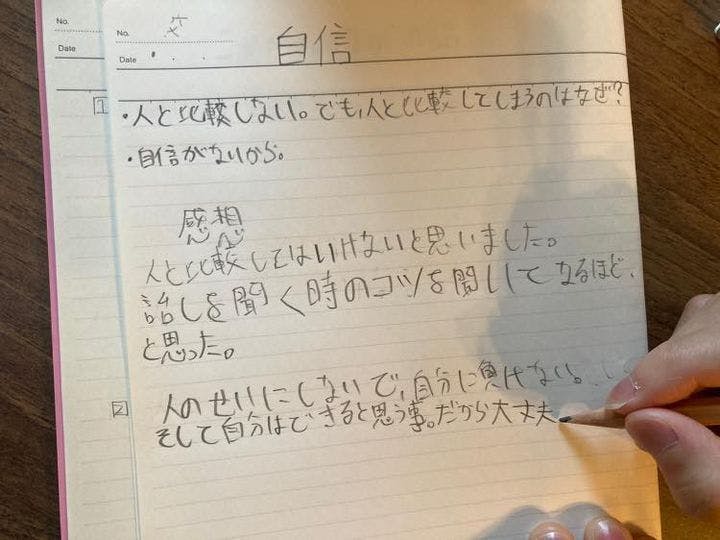 No.
Date
No.
Date
自信
1
・人と比較しない。でも、人と比較してしまうのはなぜ?
・自信がないから。
感想
人と比較してはいけないと思いました。
話しを聞く時のコツを聞いてなるほど、
と思った。
2
人のせいにしないで、自分に負けない。
そして自分はできると思う事。だから大丈夫